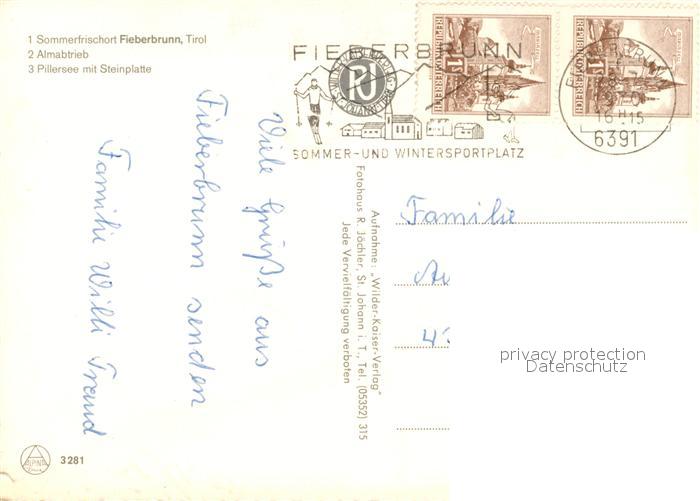 1 Sommerfrischort Fieberbrunn, Tirol
2 Almabtrieb
3 Pillersee mit Steinplatte
FIEBERBRUNN
SOMMER-UND WINTERSPORTPLATZ
REPUBLIK ÖSTERREICH
1S
REPUBLIK ÖSTERREICH
1S
6391
Viele Grüße aus
Fieberbrunn senden
Familie Willi Traud
Aufnahme: „Wilder-Kaiser-Verlag"
Fotohaus R. Jöchler, St. Johann i. T., Tel. (05352) 315
Jede Vervielfältigung verboten
Familie
privacy protection
Datenschutz
3281